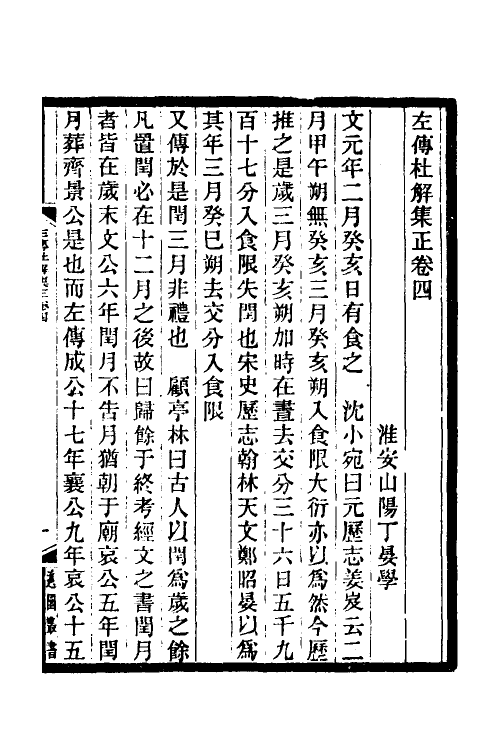 左傳杜解集正卷四
淮安山陽丁晏學
文元年二月癸亥日有食之　沈小宛曰元歷志姜岌云二
月甲午朔無癸亥三月癸亥朔入食限大衍亦以爲然今歷
推之是歲三月癸亥朔加時在晝去交分二十六日五千九
百十七分入食限失閏也宋史歷志翰林天文鄭昭晏以爲
其年三月癸巳朔去交分入食限
又傳於是閏三月非禮也　顧亭林曰古人以閏爲歲之餘
凡置閏必在十二月之後故曰歸餘于終考經文之書閏月
者皆在歲末文公六年閏月不告月猶朝于廟哀公五年閏
月葬齊景公是也而左傳成公十七年襄公九年哀公十五
左傳杜解集正卷四
一
叢書